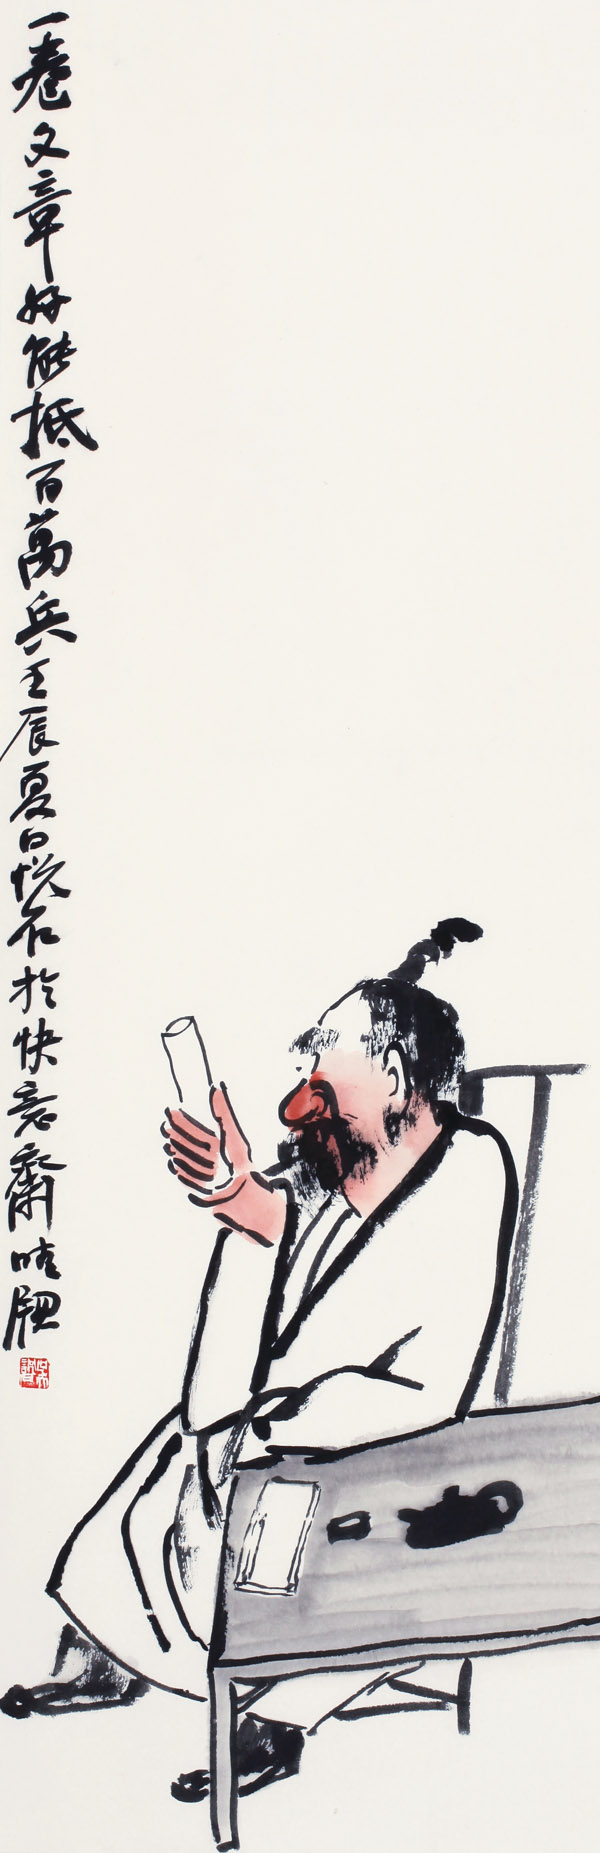 一卷文章好能抵百萬兵壬辰夏日悦石於快意齋晴窗